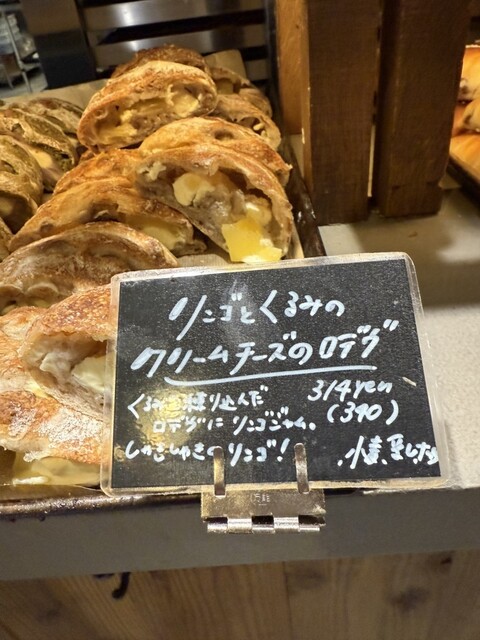 リンゴとくるみの
クリームチーズのロデヴ
314yen
(340)
くるみを練り込んだ
ロデヴに リンゴジャム、
しゃきしゃきの リンゴ!
小麦、